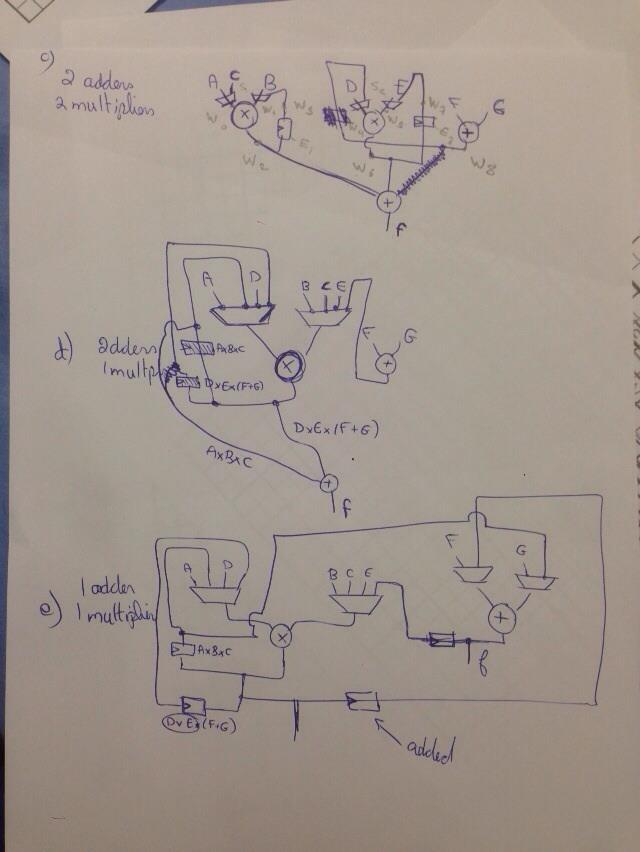 c)
2 adders
2 multipliers
A C B
D E
F G
W2
E1
W8
f
d)
2 adders
1 multp
A D
B C E
F G
AxBxC
DxEx(F+G)
DxEx(F+G)
AxBxC
f
e)
1 adder
1 multiplier
A D
B C E
F
G
AxBxC
f
DxEx(F+G)
added